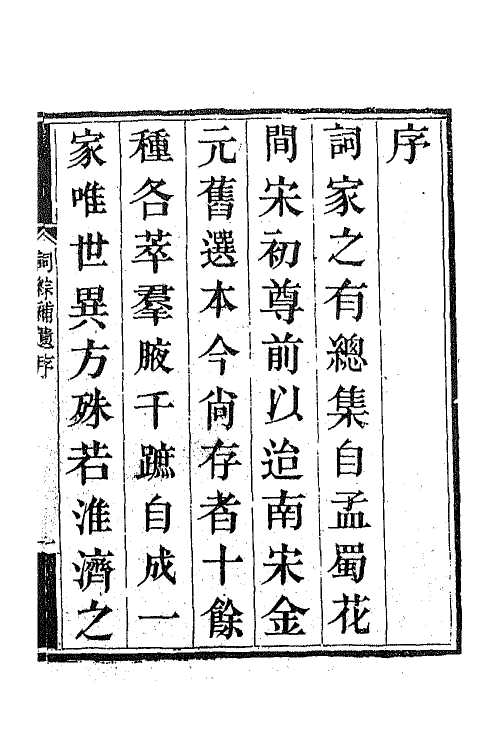 序
詞家之有總集自孟蜀花
間宋初尊前以迨南宋金
元舊選本今尚存者十餘
種各萃羣腋千蹠自成一
家唯世異方殊若淮濟之
詞綜補遺序
一